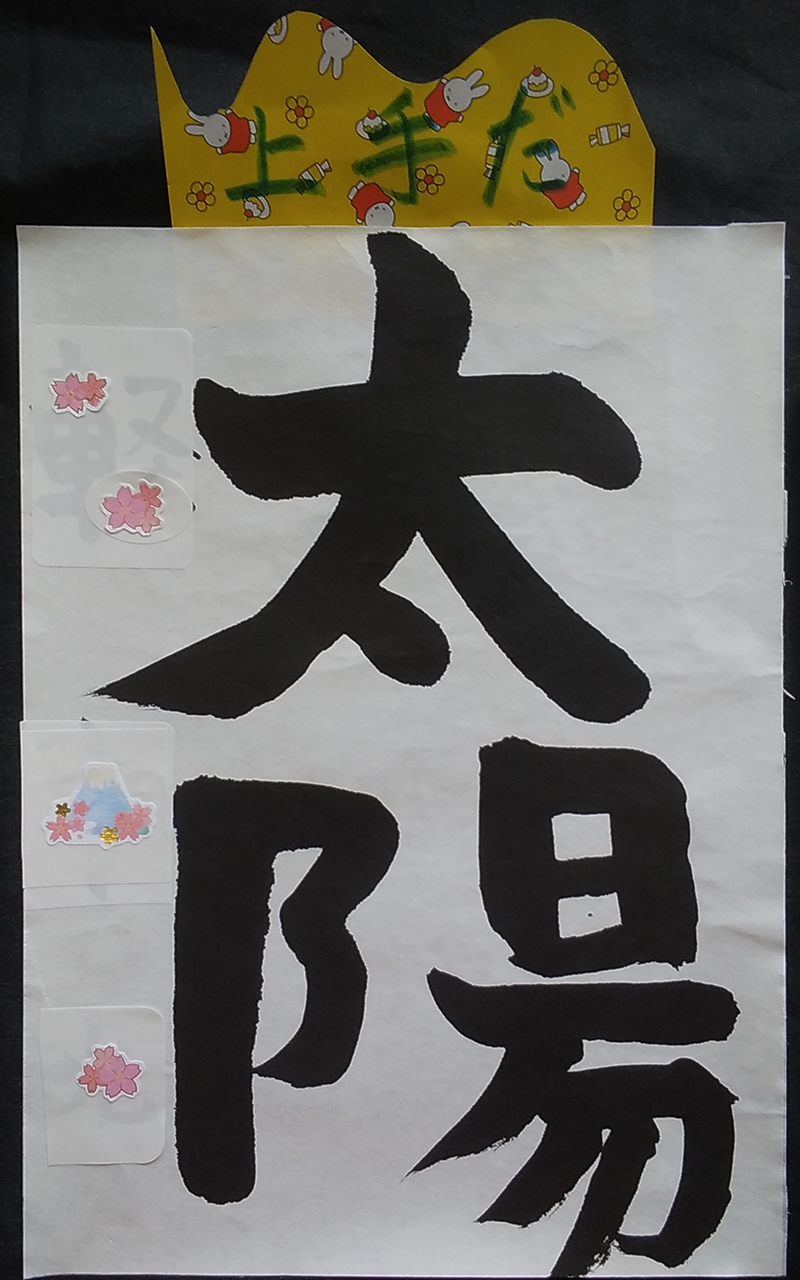 上手だ
太
陽